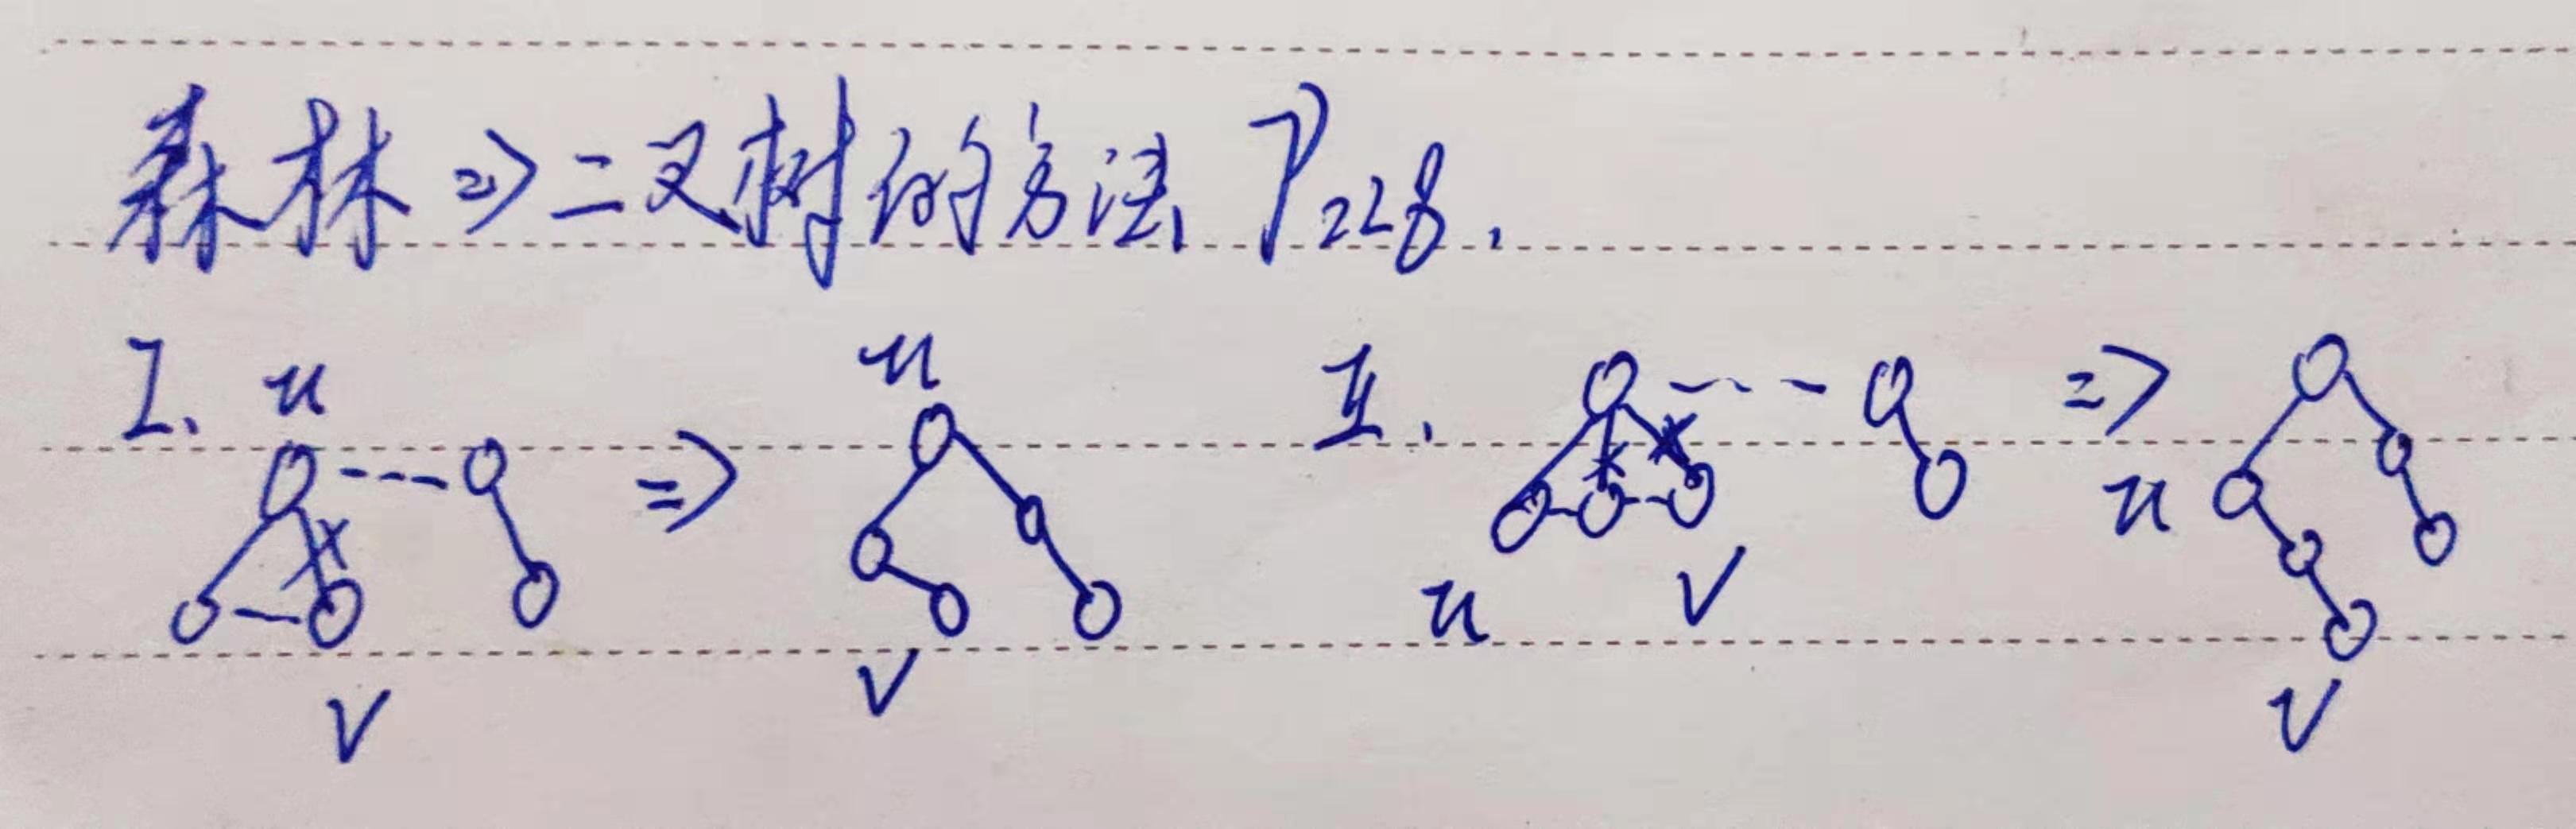 森林⇒二叉树的方法 P228.
I. u ⇒ u II. ⇒ u
v v u v v